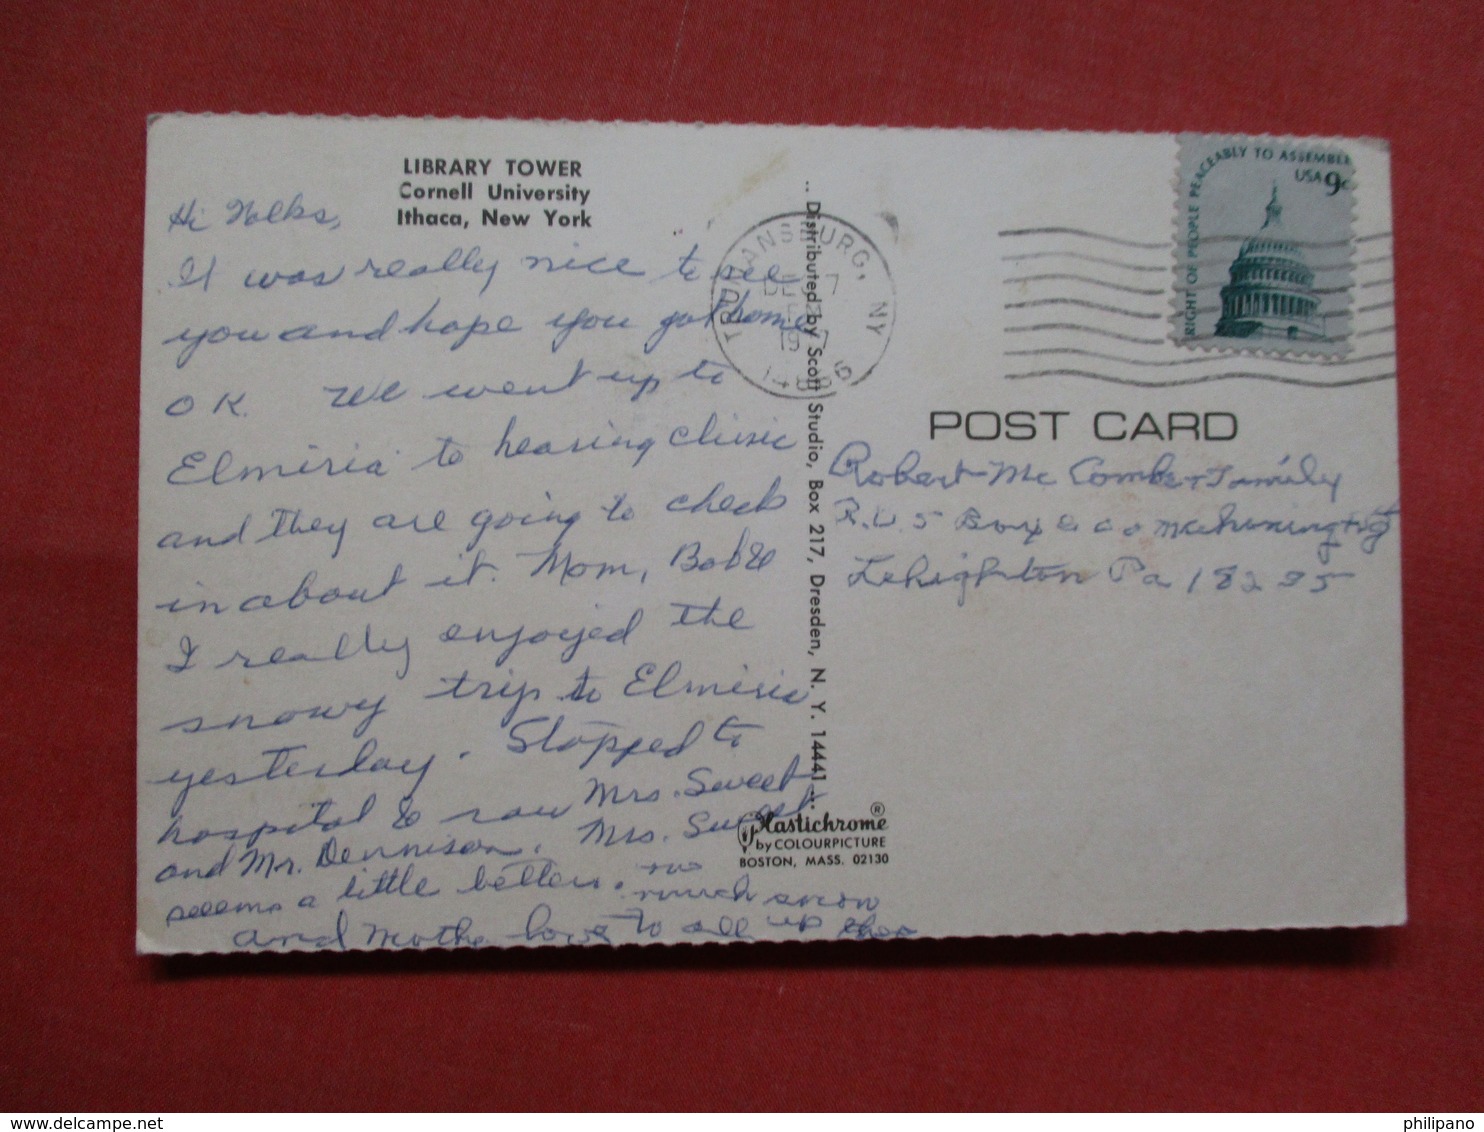 LIBRARY TOWER
Cornell University
Ithaca, New York
Hi Folks,
It was really nice to see
you and hope you got home
OK. We went up to
Elmiria to hearing clinic
and they are going to check
in about it. Mom, Bob &
I really enjoyed the
snowy trip to Elmiria
yesterday. Stopped to
hospital & saw Mrs. Sweet
and Mr. Dennison. Mrs. Sweet
seems a little better.
much snow
up
and Mothe love to all
.. Distributed by Scott Studio, Box 217, Dresden, N. Y. 14441 ..
Plastichrome ®
by COLOURPICTURE
BOSTON, MASS. 02130
TRUMANSBURG, NY
DEC 7
19
14886
RIGHT OF PEOPLE PEACEABLY TO ASSEMBLE
USA 9c
POST CARD
Robert Mc Comb & Family
R. D 5 Box
Lehighton Pa 18235
philipano